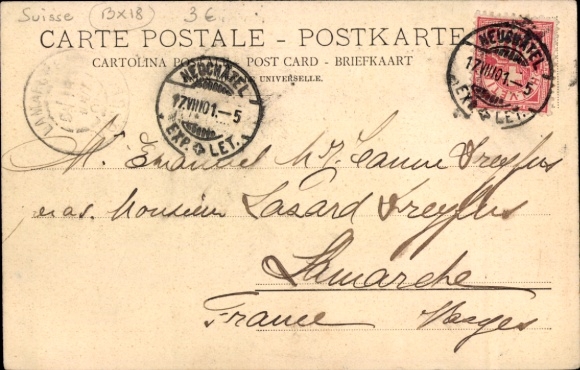 Suisse (13x18) 3 €
CARTE POSTALE - POSTKARTE
CARTOLINA POSTALE POST CARD - BRIEFKAART
UNIVERSELLE.
NEUCHATEL
17.VIII01.-5
EXP. LET.
NEUCHATEL
17.VIII01.-5
EXP. LET.
M. Emanuel Dreyfus
Monsieur Lazard Dreyfus
Lamarche
France Vosges